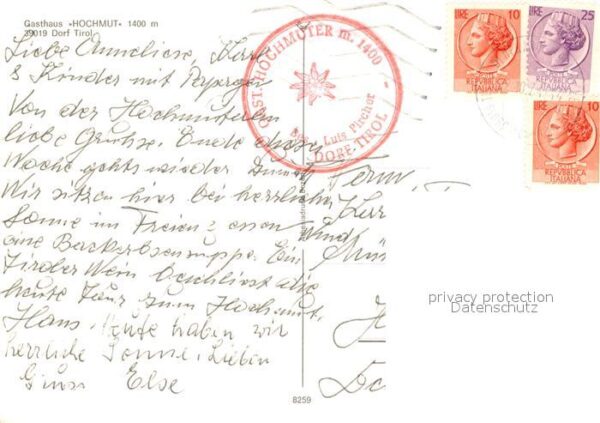 Gasthaus »HOCHMUT« 1400 m
39019 Dorf Tirol
Liebe Anneliese, Kurt
& Kinder mit
Von der Hochmuteralm
liebe Grüsse. Ende dieser
Woche gehts wieder
Wir sitzen hier bei herrlicher
Sonne im Freien & essen
eine Backerbsensuppe. Ein
Tiroler Wein beschliesst die
heute Tour zum Hochmut.
Haus. Heute haben wir
herrliche Sonne. Lieben
Gruss Else
GAST. HOCHMUTER m. 1400
Bes. Luis Pircher
DORF-TIROL
LIRE 10
REPVBBLICA
ITALIANA
LIRE 25
REPVBBLICA
ITALIANA
LIRE 10
REPVBBLICA
ITALIANA
Ferm
Kurt
und
8259
privacy protection
Datenschutz